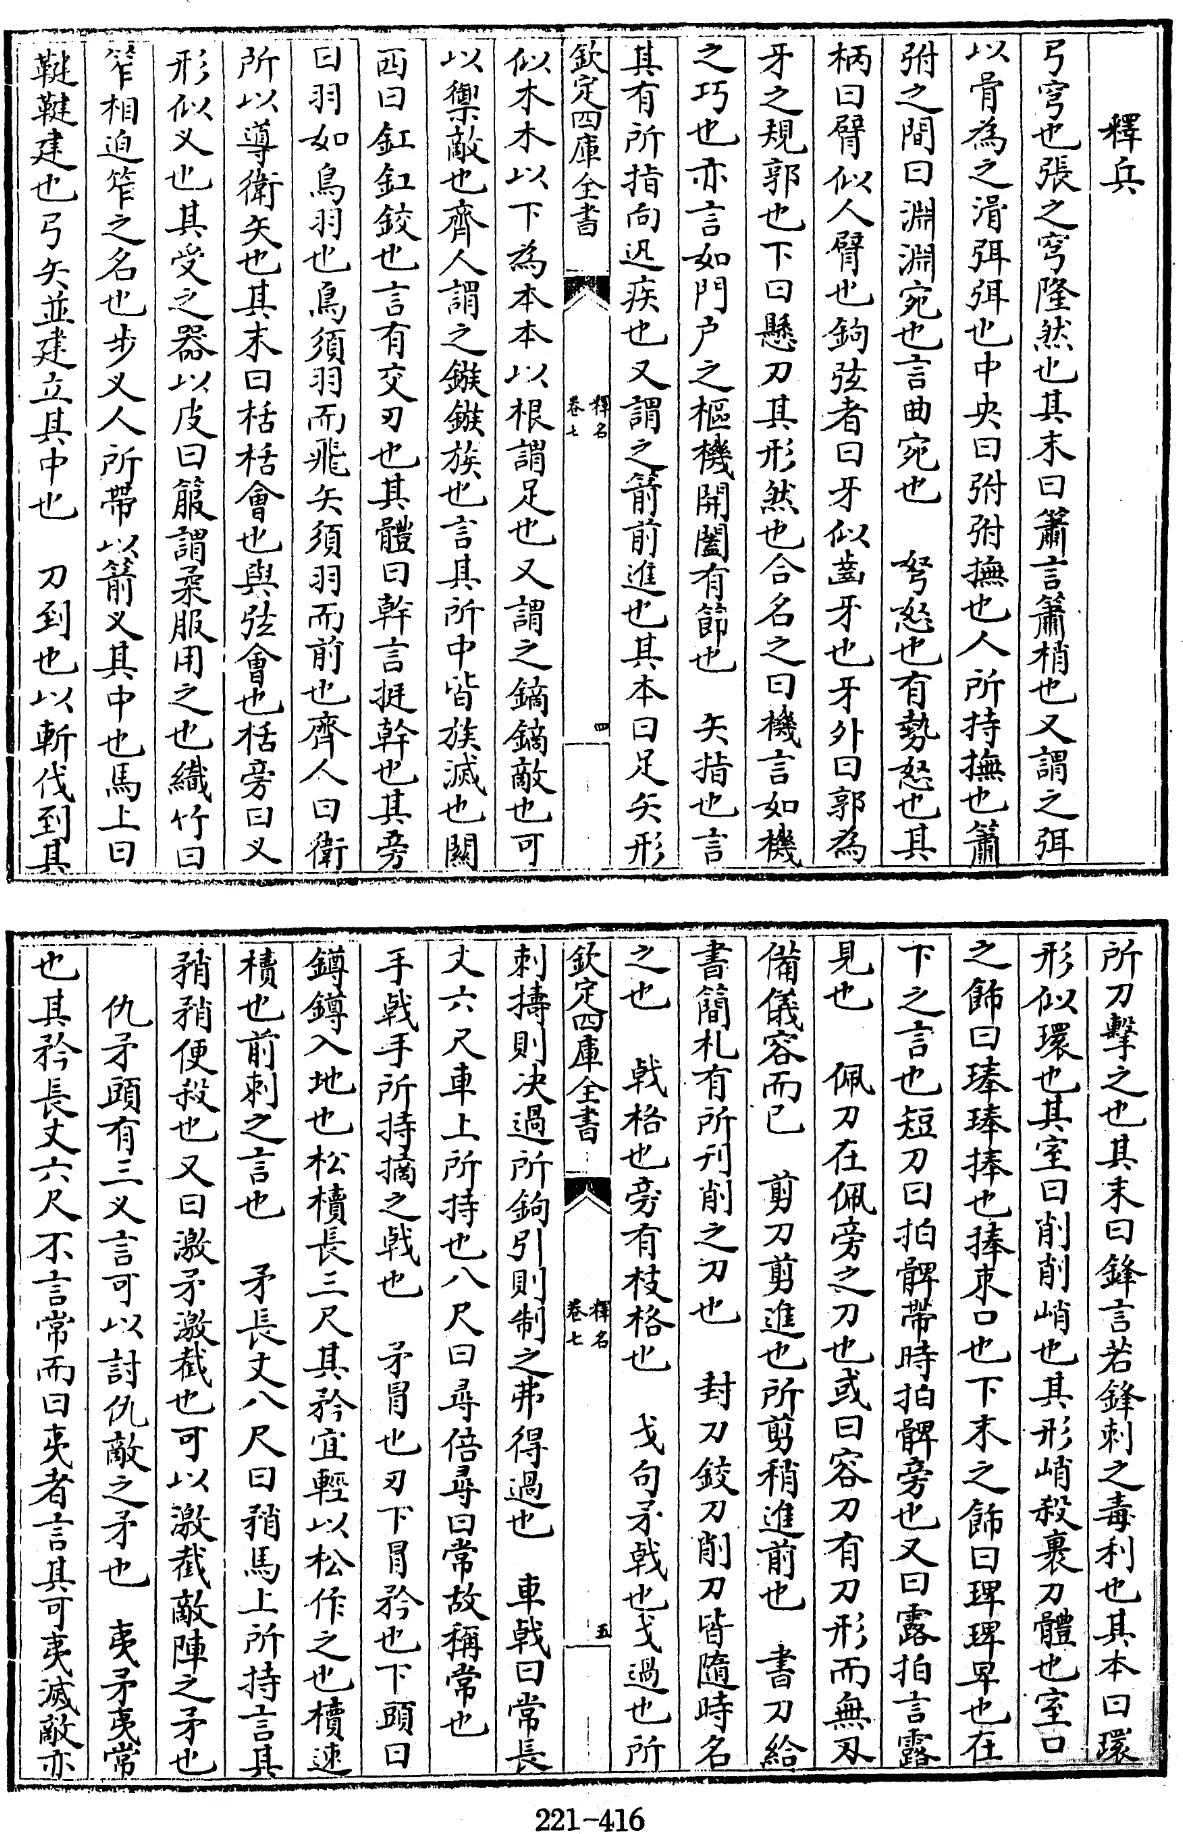 釋兵
弓穹也張之穹隆然也其末曰簫言簫梢也又謂之弭
以骨為之滑弭弭也中央曰弣弣撫也人所持撫也簫
弣之間曰淵淵宛也言曲宛也　弩怒也有勢怒也其
柄曰臂似人臂也鉤弦者曰牙似齒牙也牙外曰郭為
牙之規郭也下曰懸刀其形然也合名之曰機言如機
之巧也亦言如門户之樞機開闔有節也　矢指也言
其有所指向迅疾也又謂之箭前進也其本曰足矢形
欽定四庫全書　釋名　卷七　四
似木木以下為本本以根謂足也又謂之鏑鏑敵也可
以禦敵也齊人謂之鏃鏃族也言其所中皆族滅也關
西曰釭釭鉸也言有交刃也其體曰幹言挺幹也其旁
曰羽如鳥羽也鳥須羽而飛矢須羽而前也齊人曰衛
所以導衛矢也其末曰栝栝會也與弦會也栝旁曰叉
形似叉也其受之器以皮曰箙謂柔服用之也織竹曰
笮相迫笮之名也步叉人所帶以箭叉其中也馬上曰
鞬鞬建也弓矢並建立其中也　刀到也以斬伐到其
所刀擊之也其末曰鋒言若鋒刺之毒利也其本曰環
形似環也其室曰削削峭也其形峭殺裹刀體也室口
之飾曰琫琫捧也捧束口也下末之飾曰琕琕卑也在
下之言也短刀曰拍髀帶時拍髀旁也又曰露拍言露
見也　佩刀在佩旁之刀也或曰容刀有刀形而無刃
備儀容而已　剪刀剪進也所剪稍進前也　書刀給
書簡札有所刊削之刀也　封刀鉸刀削刀皆隨時名
之也　戟格也旁有枝格也　戈句矛戟也戈過也所
欽定四庫全書　釋名　卷七　五
刺擣則决過所鉤引則制之弗得過也　車戟曰常長
丈六尺車上所持也八尺曰尋倍尋曰常故稱常也
手戟手所持摘之戟也　矛冒也刃下冒矜也下頭曰
鐏鐏入地也松櫝長三尺其矜宜輕以松作之也櫝速
櫝也前刺之言也　矛長丈八尺曰矟馬上所持言其
矟矟便殺也又曰激矛激截也可以激截敵陣之矛也
仇矛頭有三叉言可以討仇敵之矛也　夷矛夷常
也其矜長丈六尺不言常而曰夷者言其可夷滅敵亦
221-416